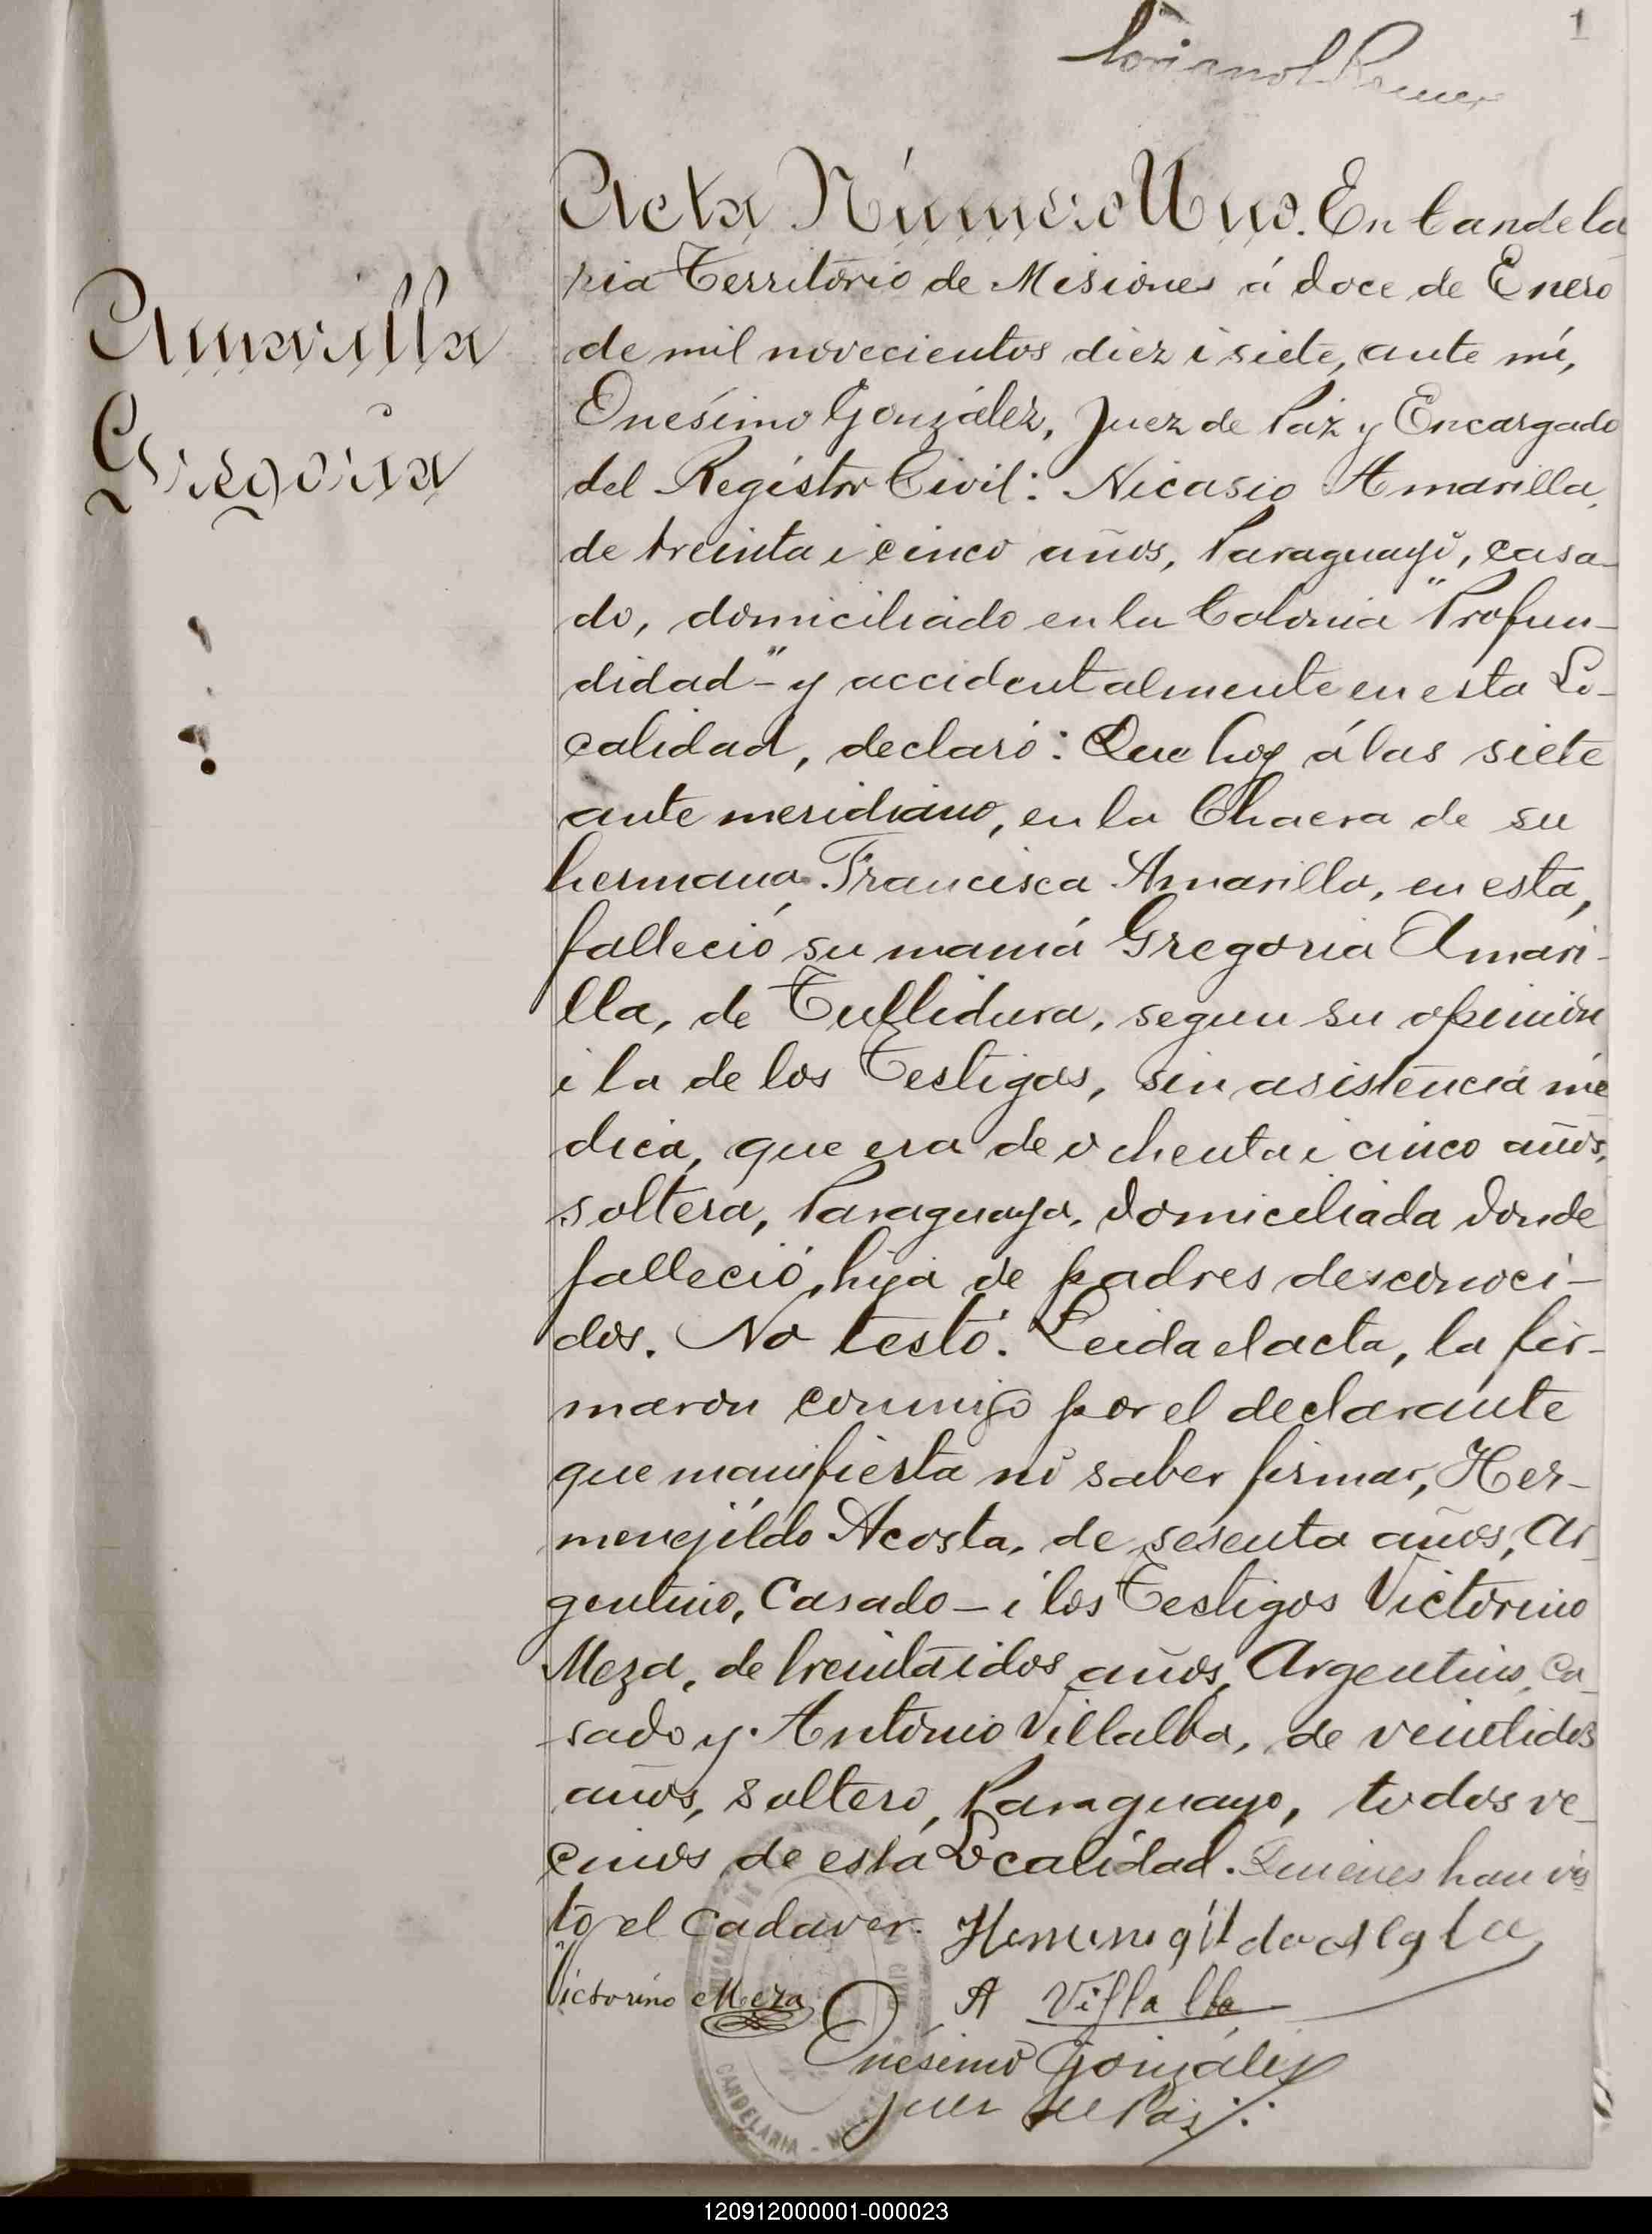 1
Amarilla
Gregoria
Acta Número Uno. En Candela
ria Territorio de Misiones á doce de Enero
de mil novecientos diez i siete, ante mí,
Onésimo González, Juez de Paz y Encargado
del Registro Civil: Nicasio Amarilla,
de treinta i cinco años, Paraguayo, casa-
do, domiciliado en la Colonia "Profun-
didad-" y accidentalmente en esta Lo-
calidad, declaró: Que hoy á las siete
ante meridiano, en la Chacra de su
hermana Francisca Amarilla, en esta,
falleció su mamá Gregoria Amari-
lla, de Tullidura, segun su opinión
i la de los Testigos, sin asistencia mé
dica, que era de ochenta i cinco años,
soltera, Paraguaya, domiciliada donde
falleció, hija de padres desconoci-
dos. No testó. Leida el acta, la fir-
maron conmigo por el declarante
que manifiesta no saber firmar, Her-
menejildo Acosta, de sesenta años, Ar
gentino, Casado - i los Testigos Victorino
Meza, de treintaidos años, Argentino, Ca
sado y Antonio Villalba, de veintidos
años, soltero, Paraguayo, todos ve
cinos de esta Localidad. Quienes han vis
to el Cadaver.
Victorino Meza
A Villalba
Onésimo González
Juez de Paz
CANDELARIA
120912000001-000023